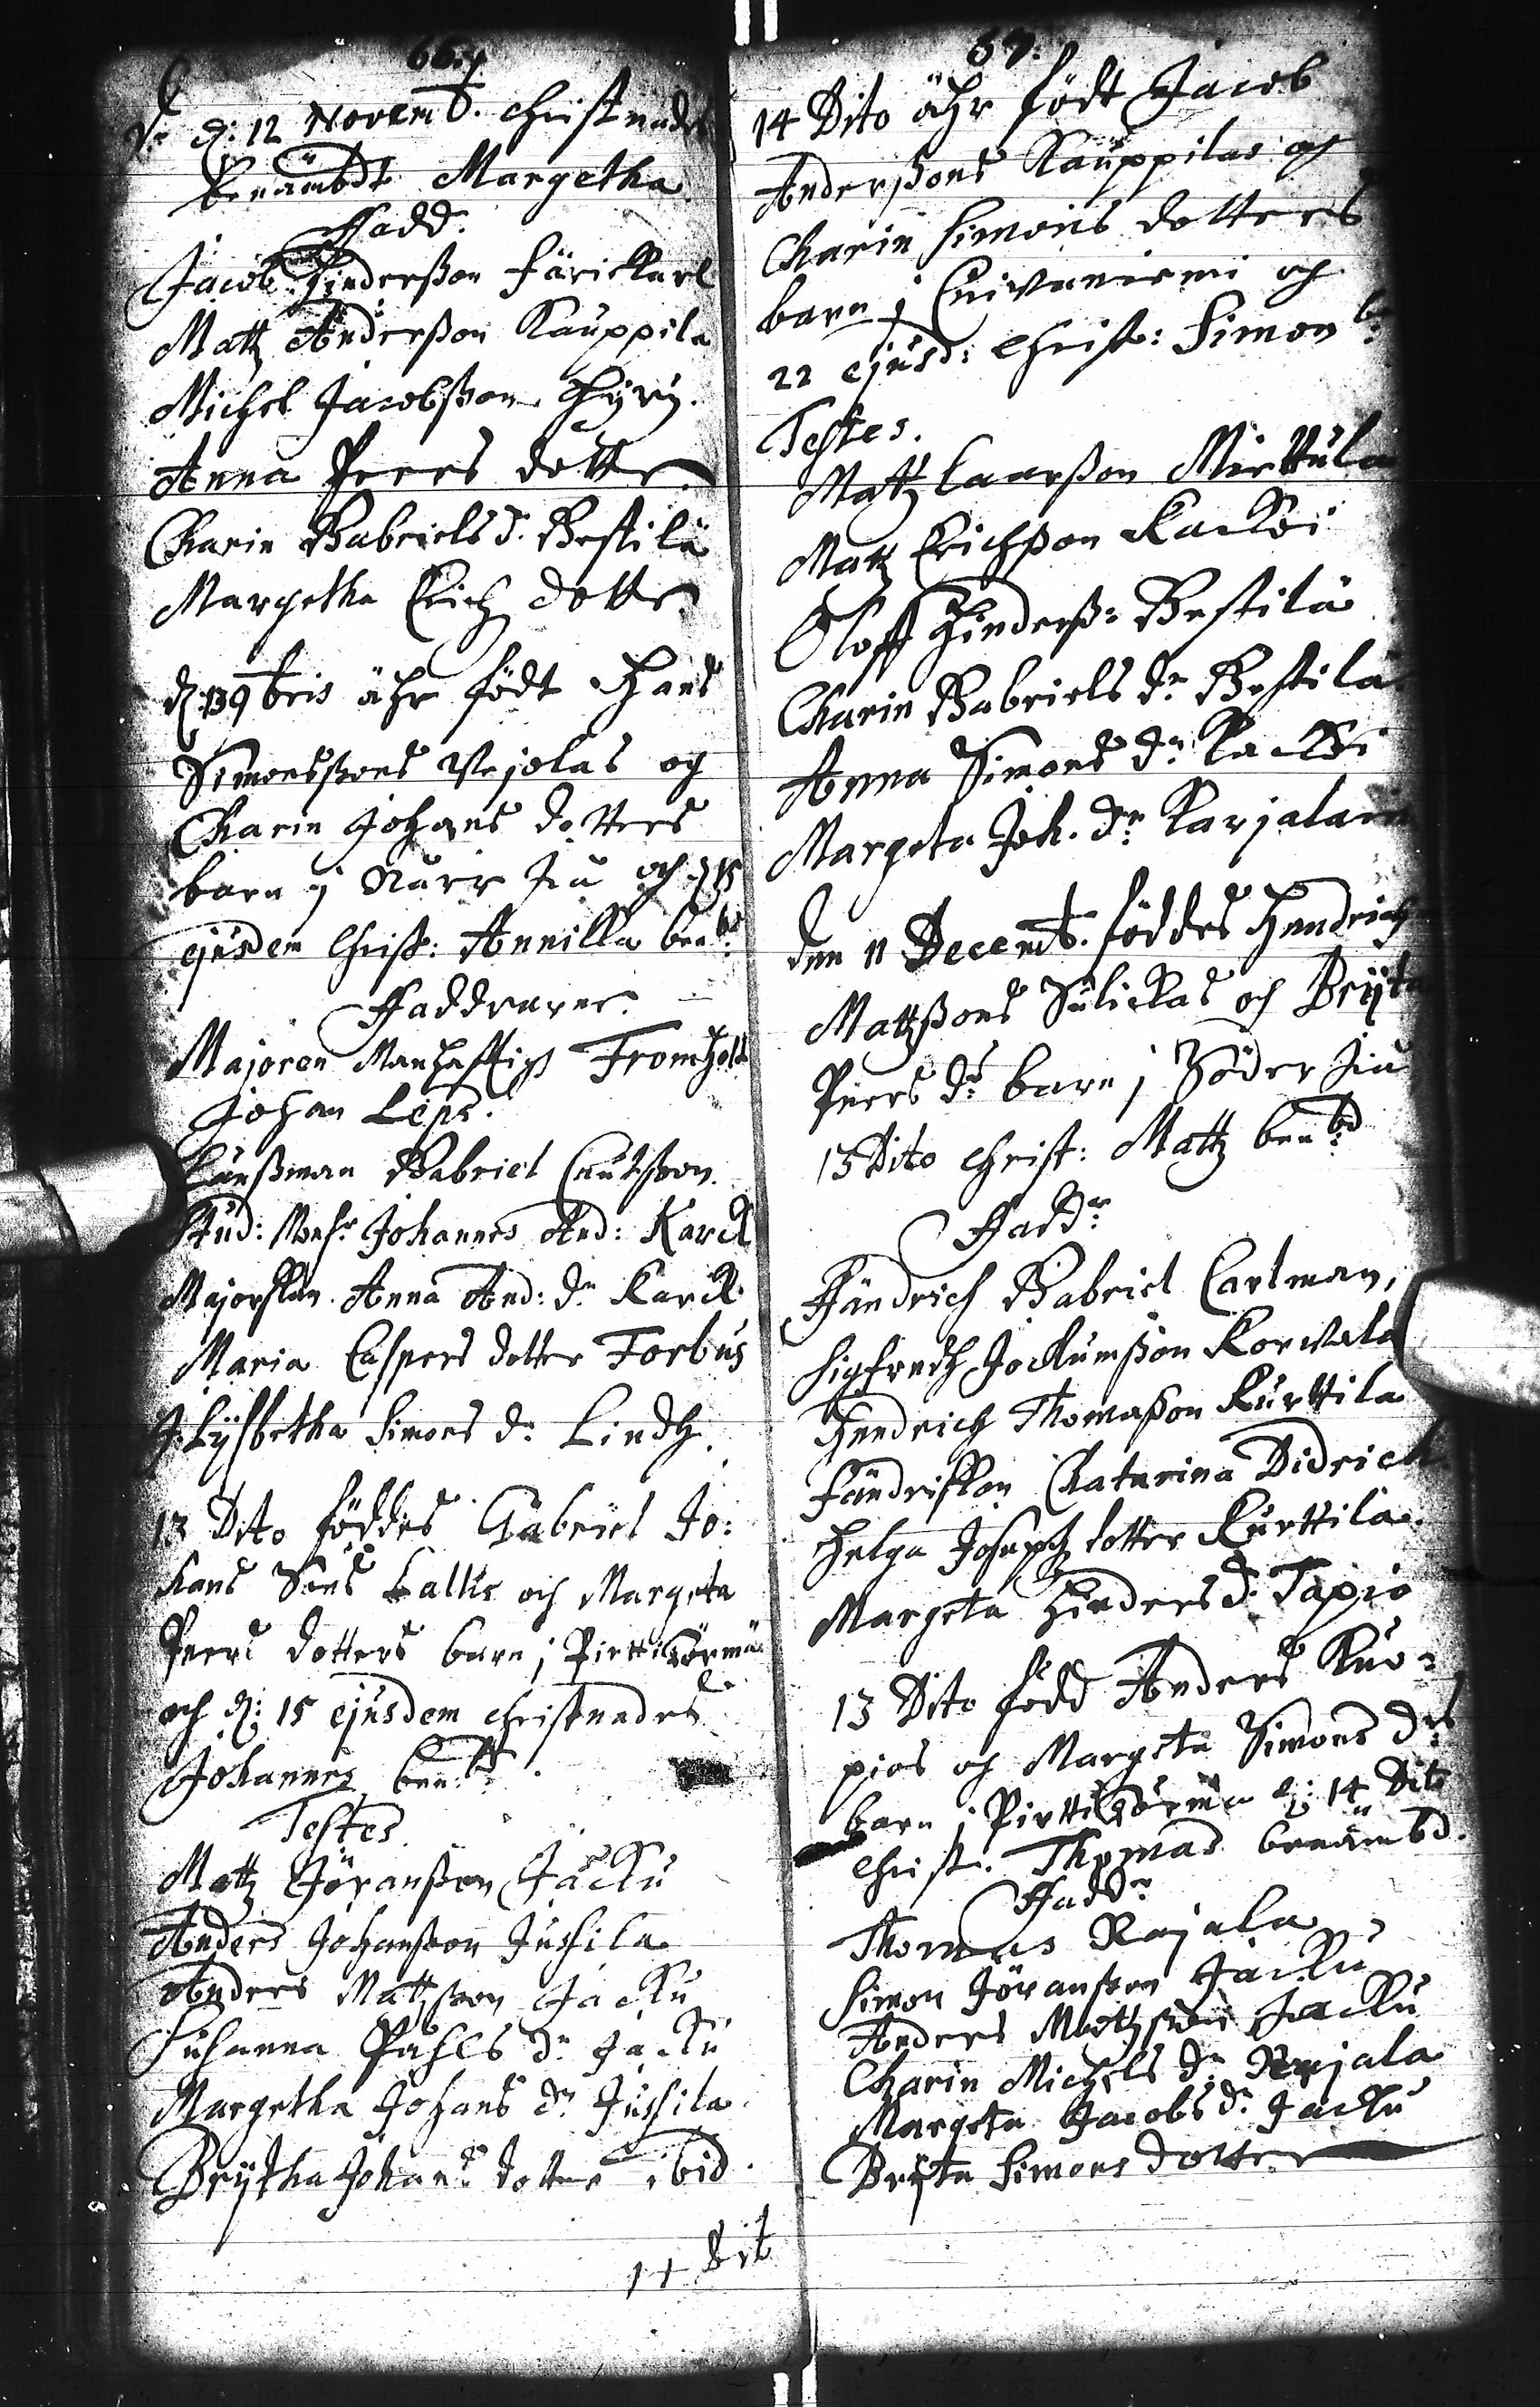 66.
d: 12 Novemb. christnades
benämbdt Margetha
Fadd.
Jacob Hindersson Färickarl
Mattz Andersson Kauppila
Michel Jacobsson Hyry.
Anna Peers dotter.
Charin Gabriels d. Bestilä
Margetha Erich dotter
d. 13 9bris åhr födt Hans
Simonssons Vejolas och
Charin Johans dotters
barn j Nurr Jiu och d 15
ejusdem Christ: Annikka ben:d
Faddrarne.
Majoren Manhafftigh Fromholt
Johan Leps.
Länssman Gabriel Cnutsson.
Stud: Monsr Johannes And: Karck
Majorskan Anna And: dr Karck.
Maria Caspers dotter Forbus
J. Lysbetha Simons dr Lindh.
13 Dito föddes Gabriel Jo:
hans Sons Lallis och Margeta
Peers dotters barn j Pirttikörmä
och d: 15 ejusdem christnades
Johannes ben:d
Testes
Mattz Jöransson Jäcku
Anders Johansson Jussila
Anders Mattzson Jäcku
Susanna Påhls dr Jäcku
Margetha Johans dr Jussila.
Brytha Johans dotter ibid.
14 Dit
67.
14 Dito åhr födt Jacob
Anderssons Kauppilas och
Charin Simons dotters
barn j Cuivaniemi och
22 ejusd: Christ: Simon b:
Testes.
Mattz Laarsson Mirttula
Mattz Erichsson Kacko
Oloff Hinderss: Bestilä
Charin Gabriels dr Bestilä
Anna Simons dr Kacko
Margeta Joh. dr Karjalain
den 11 Decemb. föddes Hendrich
Mattzsons Sulickas och Bryta
Peers drs barn j Söder Jiu
13 Dito Christ: Mattz ben:bd
Faddr
Fändrich Gabriel Cartman,
Sigfredh Jockumsson Korwala
Hendrich Thomasson Kurttila
Fändriskan Chatarina Didrich
Helga Josephz dotter Kurttila.
Margeta Hinders dr Tapio
13 Dito född Anders Kuo=
pios och Margeta Simons drs
barn j Pirttikörmä d: 14 Dito
Christ. Thomas benämbd.
Faddr
Thomas Rajala
Simon Jöransson Jäcku
Anders Mattzson Jacku
Charin Michels dr Rajala
Margeta Jacobs dr Jäcku
Bryta Simons dotter